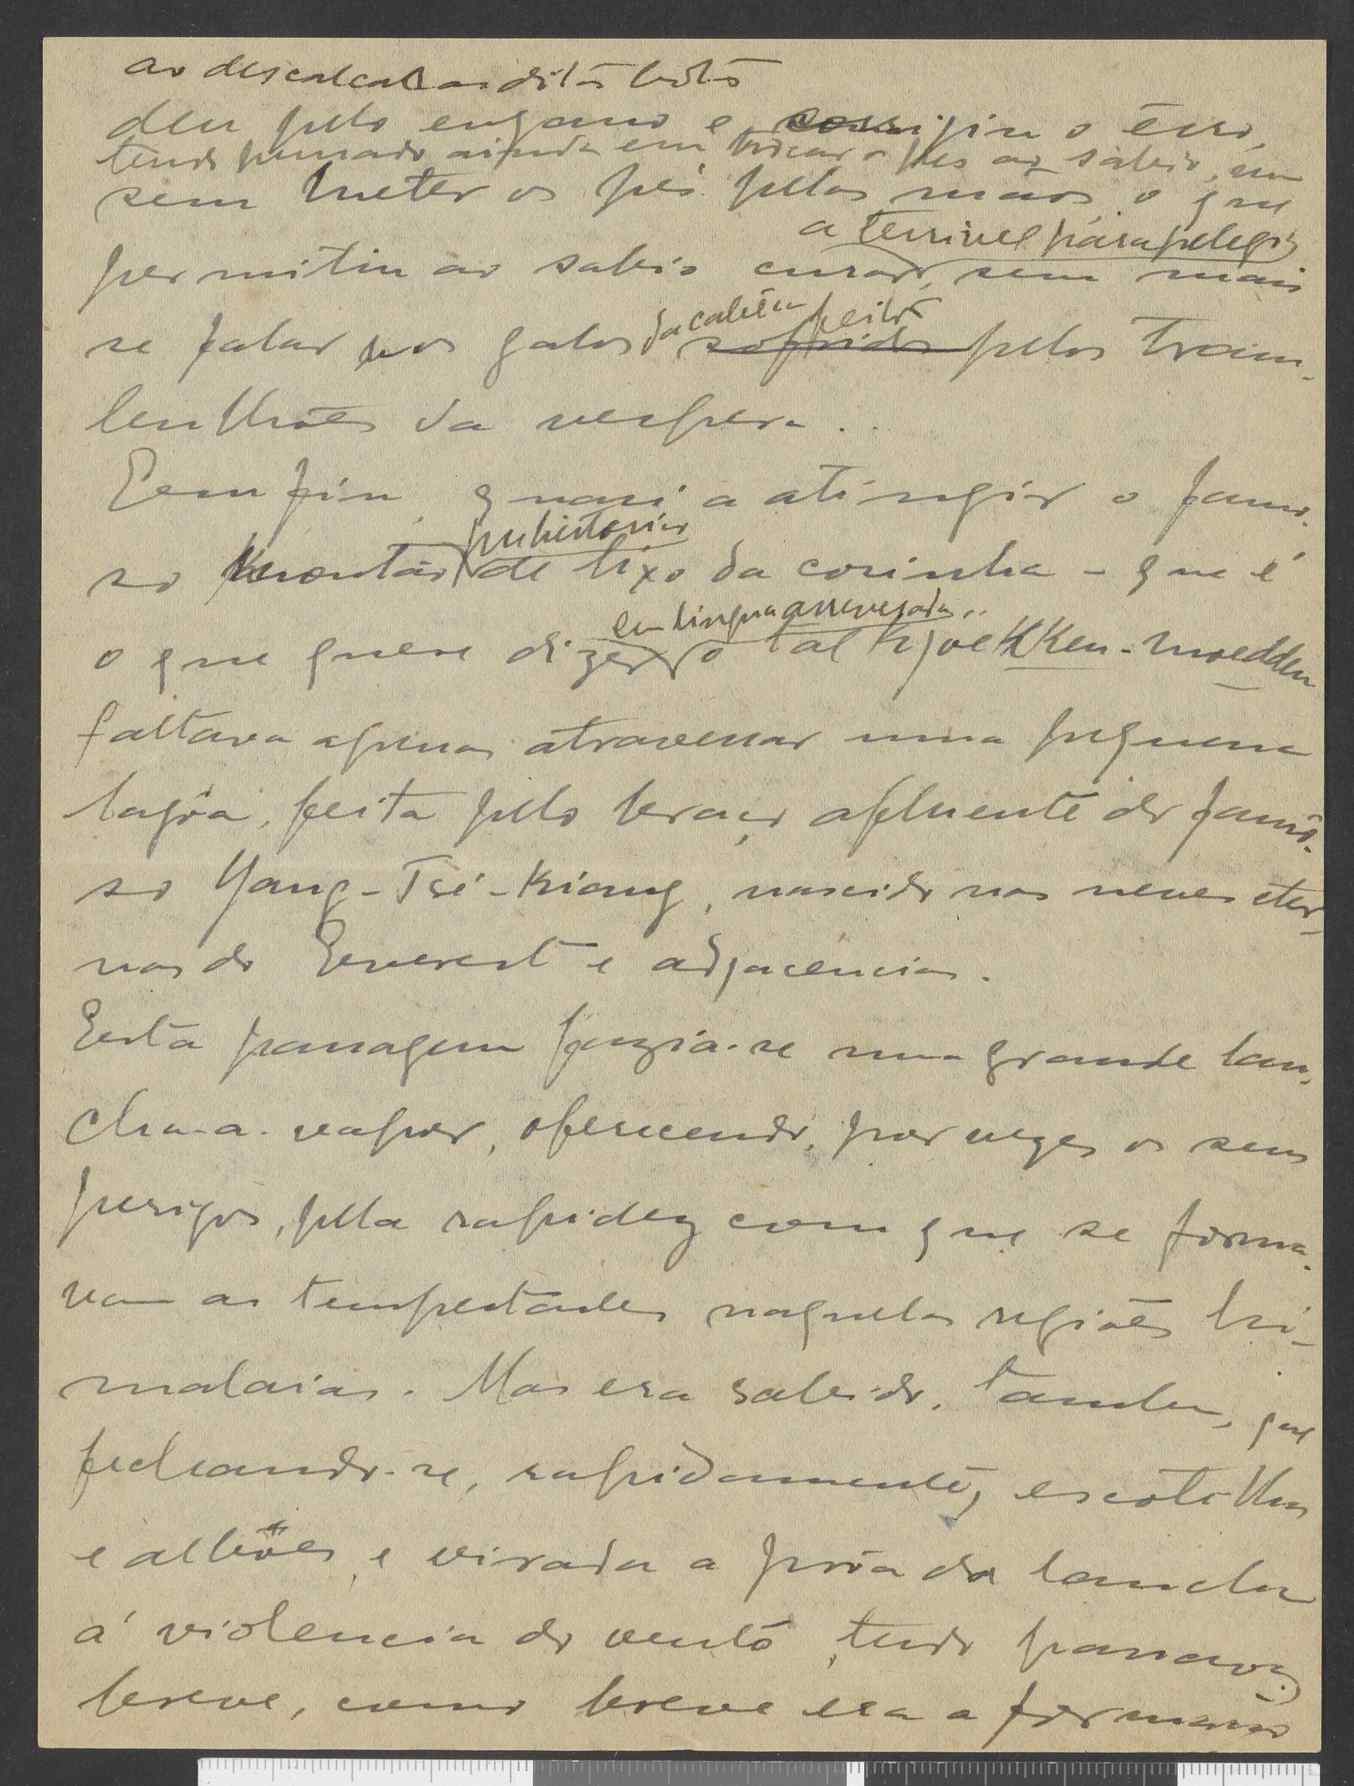 ao descalçar as ditas botas
deu pelo engano e corrigiu o êrro,
tendo pensado ainda em trocar os pés ao sabio,
sem meter os pés pelas mãos o que
a terrivel párapelegia
permitiu ao sabio curar, sem mais
da cabêça feitos
se falar nos galos soffridos pelos tram-
bulhões da vespera..
Eem fim, quasi a atingir o famo-
prehistorico
so montão de lixo da cosinha - que é
em lingua arrevesada..
o que quere dizer o tal Kjoekken-moedden
faltava apenas atravessar uma pequena
lagôa, feita pelo braço afluente do famô-
so Yang-Tsé-Kiang, nascido nas neves eter-
nas do Everest e adjacencias.
Esta passagem fazia-se numa grande lan-
cha-a-vapor, oferecendo, por vezes os seus
perigos, pela rapidez com que se forma-
vam as tempestades naquelas regiões hi-
malaias. Mas era sabido, tambem, que
fechando-se, rapidamente, escotilhas
e albôes, e virada a prôa da lancha
á violencia do vento, tudo passava
breve, como breve era a formação